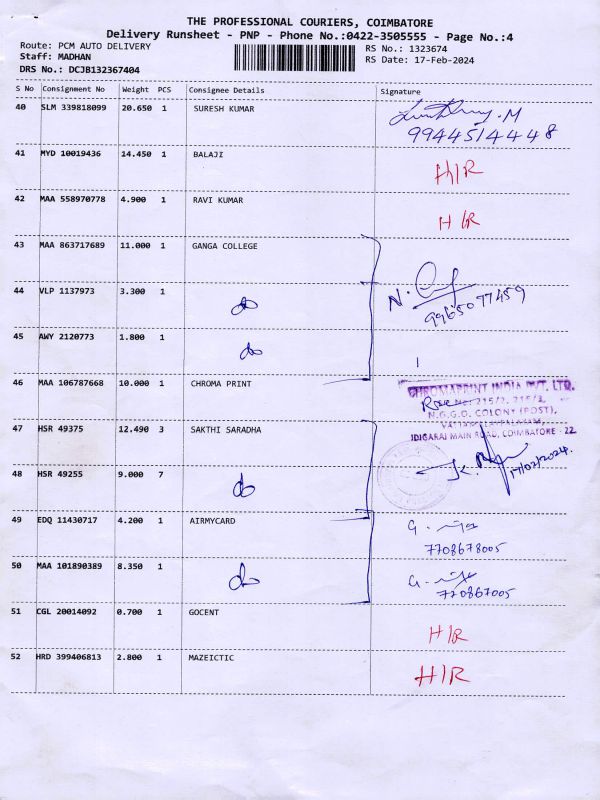 THE PROFESSIONAL COURIERS, COIMBATORE
Delivery Runsheet - PNP - Phone No.:0422-3505555 - Page No.:4
Route: PCM AUTO DELIVERY
RS No.: 1323674
Staff: MADHAN
RS Date: 17-Feb-2024
DRS No.: DCJB132367404
S No Consignment No Weight PCS Consignee Details Signature
40 SLM 339818099 20.650 1 SURESH KUMAR
9944514448
41 MYD 10019436 14.450 1 BALAJI
H/R
42 MAA 558970778 4.900 1 RAVI KUMAR
H/R
43 MAA 863717689 11.000 1 GANGA COLLEGE
44 VLP 1137973 3.300 1 do
9965077459
45 AWY 2120773 1.800 1 do
46 MAA 106787668 10.000 1 CHROMA PRINT
CHROMAPRINT INDIA PVT. LTD.
N.G.G.O. COLONY (POST),
47 HSR 49375 12.490 3 SAKTHI SARADHA
IDIGARAI MAIN ROAD, COIMBATORE - 22.
17/02/2024.
48 HSR 49255 9.000 7 do
49 EDQ 11430717 4.200 1 AIRMYCARD
7708678005
50 MAA 101890389 8.350 1 do
770867005
51 CGL 20014092 0.700 1 GOCENT
H/R
52 HRD 399406813 2.800 1 MAZEICTIC
H/R